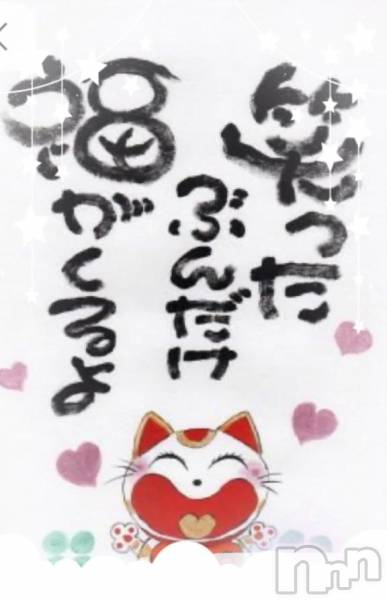 笑った
ぶんだけ
福がくるよ